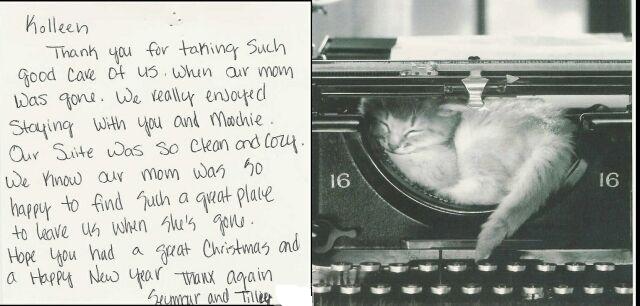 Kolleen
Thank you for taking such
good care of us. when our mom
was gone. We really enjoyed
staying with you and Moochie.
Our Suite was so clean and cozy.
We know our mom was so
happy to find such a great place
to leave us when she's gone.
Hope you had a great Christmas and
a Happy New Year Thanx again
Seymour and Tilley
16
16